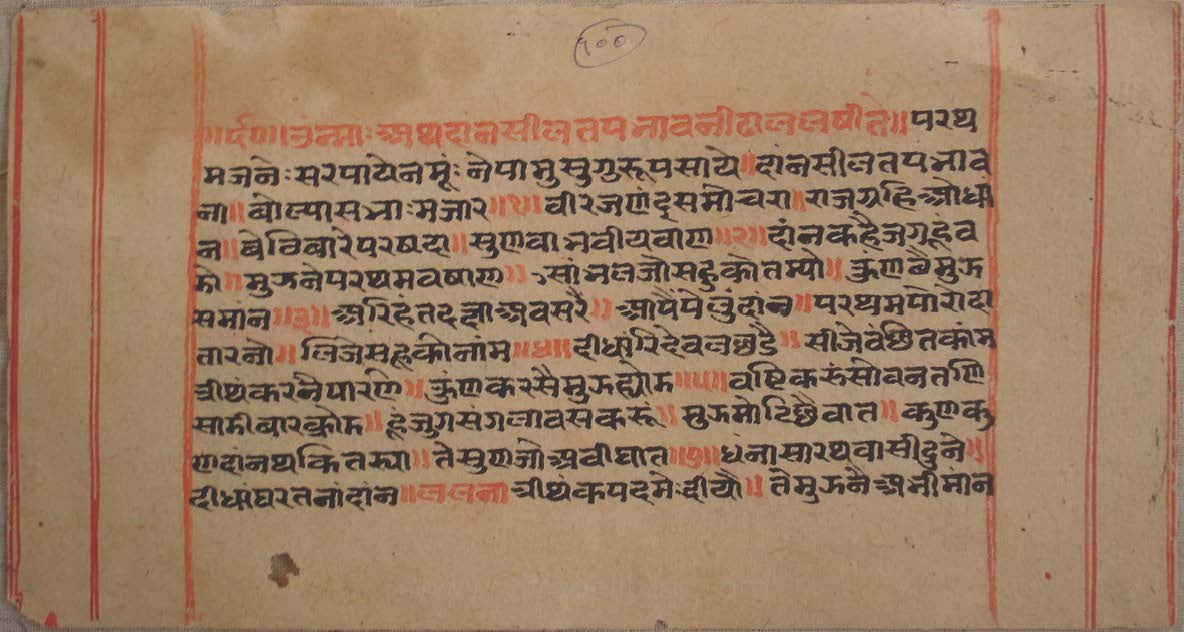 १००
अथ दांनसीलतपभावनी ढाल लषीतै॥ परथ
मजनेःसरपायेनमूंःनेपामुसुगुरूपसाये॥दांनसीलतपभाव
ना॥बोल्यासभाःमजार॥१॥वीरजणंदसमोचरा॥राजग्रहिओधां
न॥बेठिबारेपरषदा॥सुणवाभवीयवाण॥२॥दांनकहैजगहूंव
डो॥मुझनेपरथमवषाण॥सांभलजोसहुकोतम्यो॥कुंणछैमुझ
समांन॥३॥अरिहंतदक्षाअवसरै॥आपैपेलुंदांन॥परथमपोरोदा
तारनो॥लिजेसहूकोनांम॥४॥दीधांरिदेवलछडै॥सीजेवंछितकांम
त्रीथंकरनैपारणै॥कुंणकरसैमुझहोड॥५॥वष्टिकरुंसोवनतणि
साडीबारक्रोड॥हूंजुगसगलावसकरूं॥मुझमोटिछैवात॥कुणकु
णदांनथकितस्या॥तेसुणजोअवीघात॥७॥धंनासारथवासीदुने॥
दीधांघरतनांदांन॥ललना त्रीथंकपदमेःदीयौ॥तेमुझनैअभीमांन